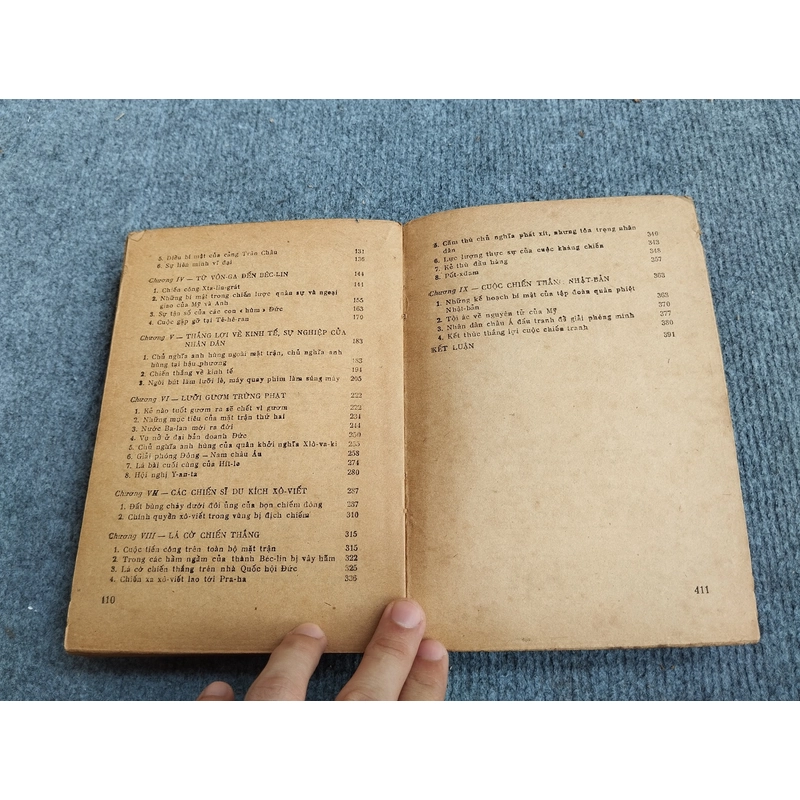 5. Điều bí mật của cảng Trân Châu 131
6. Sự liên minh vĩ đại 136
Chương IV — TỪ VÔN-GA ĐẾN BÉC-LIN 144
1. Chiến công Xta-lin-grát 144
2. Những bí mật trong chiến lược quân sự và ngoại
giao của Mỹ và Anh 155
3. Sự tận số của các con «hùm» Đức 163
4. Cuộc gặp gỡ tại Tê-hê-ran 170
Chương V — THẮNG LỢI VỀ KINH TẾ, SỰ NGHIỆP CỦA
NHÂN DÂN 183
1. Chủ nghĩa anh hùng ngoài mặt trận, chủ nghĩa anh
hùng tại hậu phương 183
2. Chiến thắng về kinh tế 194
3. Ngòi bút làm lưỡi lê, máy quay phim làm súng máy 205
Chương VI — LƯỠI GƯƠM TRỪNG PHẠT 222
1. Kẻ nào tuốt gươm ra sẽ chết vì gươm 222
2. Những mục tiêu của mặt trận thứ hai 231
3. Nước Ba-lan mới ra đời 244
4. Vụ nổ ở đại bản doanh Đức 250
5. Chủ nghĩa anh hùng của quân khởi nghĩa Xlô-va-ki 255
6. Giải phóng Đông — Nam châu Âu 258
7. Lá bài cuối cùng của Hít-le 274
8. Hội nghị Y-an-ta 280
Chương VII — CÁC CHIẾN SĨ DU KÍCH XÔ-VIẾT 287
1. Đất bùng cháy dưới đôi ủng của bọn chiếm đóng 287
2. Chính quyền xô-viết trong vùng bị địch chiếm 310
Chương VIII — LÁ CỜ CHIẾN THẮNG 315
1. Cuộc tiến công trên toàn bộ mặt trận 315
2. Trong các hầm ngầm của thành Béc-lin bị vây hãm 322
3. Lá cờ chiến thắng trên nhà Quốc hội Đức 325
4. Chiến xa xô-viết lao tới Pra-ha 336
410
5. Căm thù chủ nghĩa phát xít, nhưng tôn trọng nhân
dân 340
6. Lực lượng thực sự của cuộc kháng chiến 343
7. Kẻ thù đầu hàng 348
8. Pốt-xđam 357
Chương IX — CUỘC CHIẾN TRANH NHẬT-BẢN 363
1. Những kế hoạch bí mật của tập đoàn quân phiệt
Nhật-bản 363
2. Tội ác về nguyên tử của Mỹ 370
3. Nhân dân châu Á đấu tranh để giải phóng mình 377
4. Kết thúc thắng lợi cuộc chiến tranh 380
KẾT LUẬN 391
411